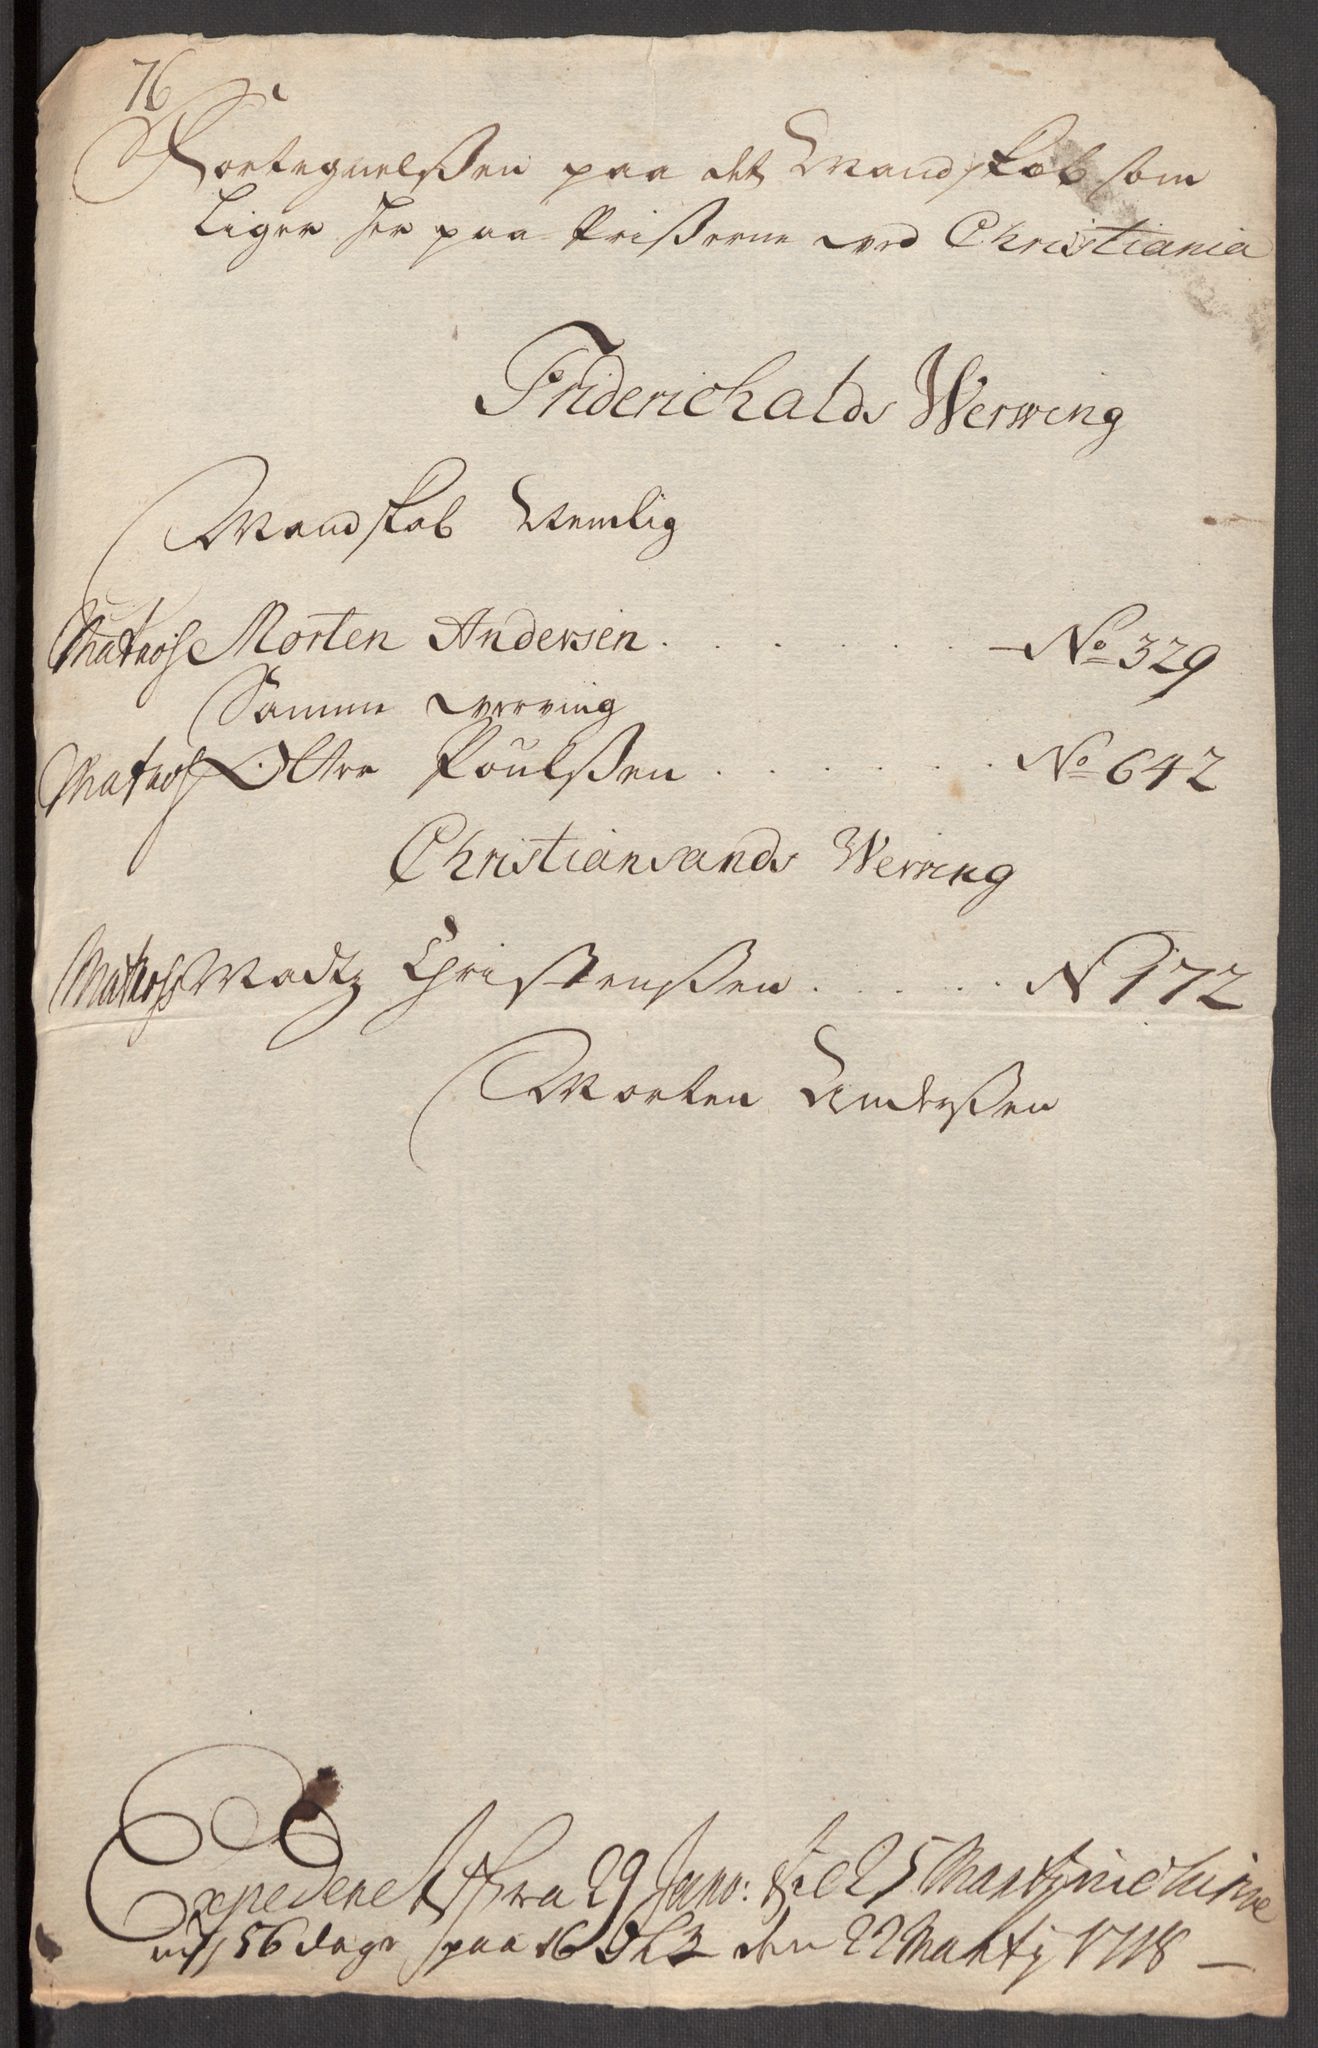 76
Fortegnelßen paa det Mandskab som
Liger her paa Prißerne ved Christiania
Friderichalds Werwing
Mandskab Nemlig
Matroß Morten Andersen . . . . . . . No 329
Samme verving
Matroß Olle Poulßen . . . . . . No 642
Christiansands Werving
Matroß Madtz Christenßen . . . . . N 172
Morten Anderßen
Expederet fra 29 Janv: til 25 Marty inclusive
56 dage paa 16 den 22 Marty 1718 —